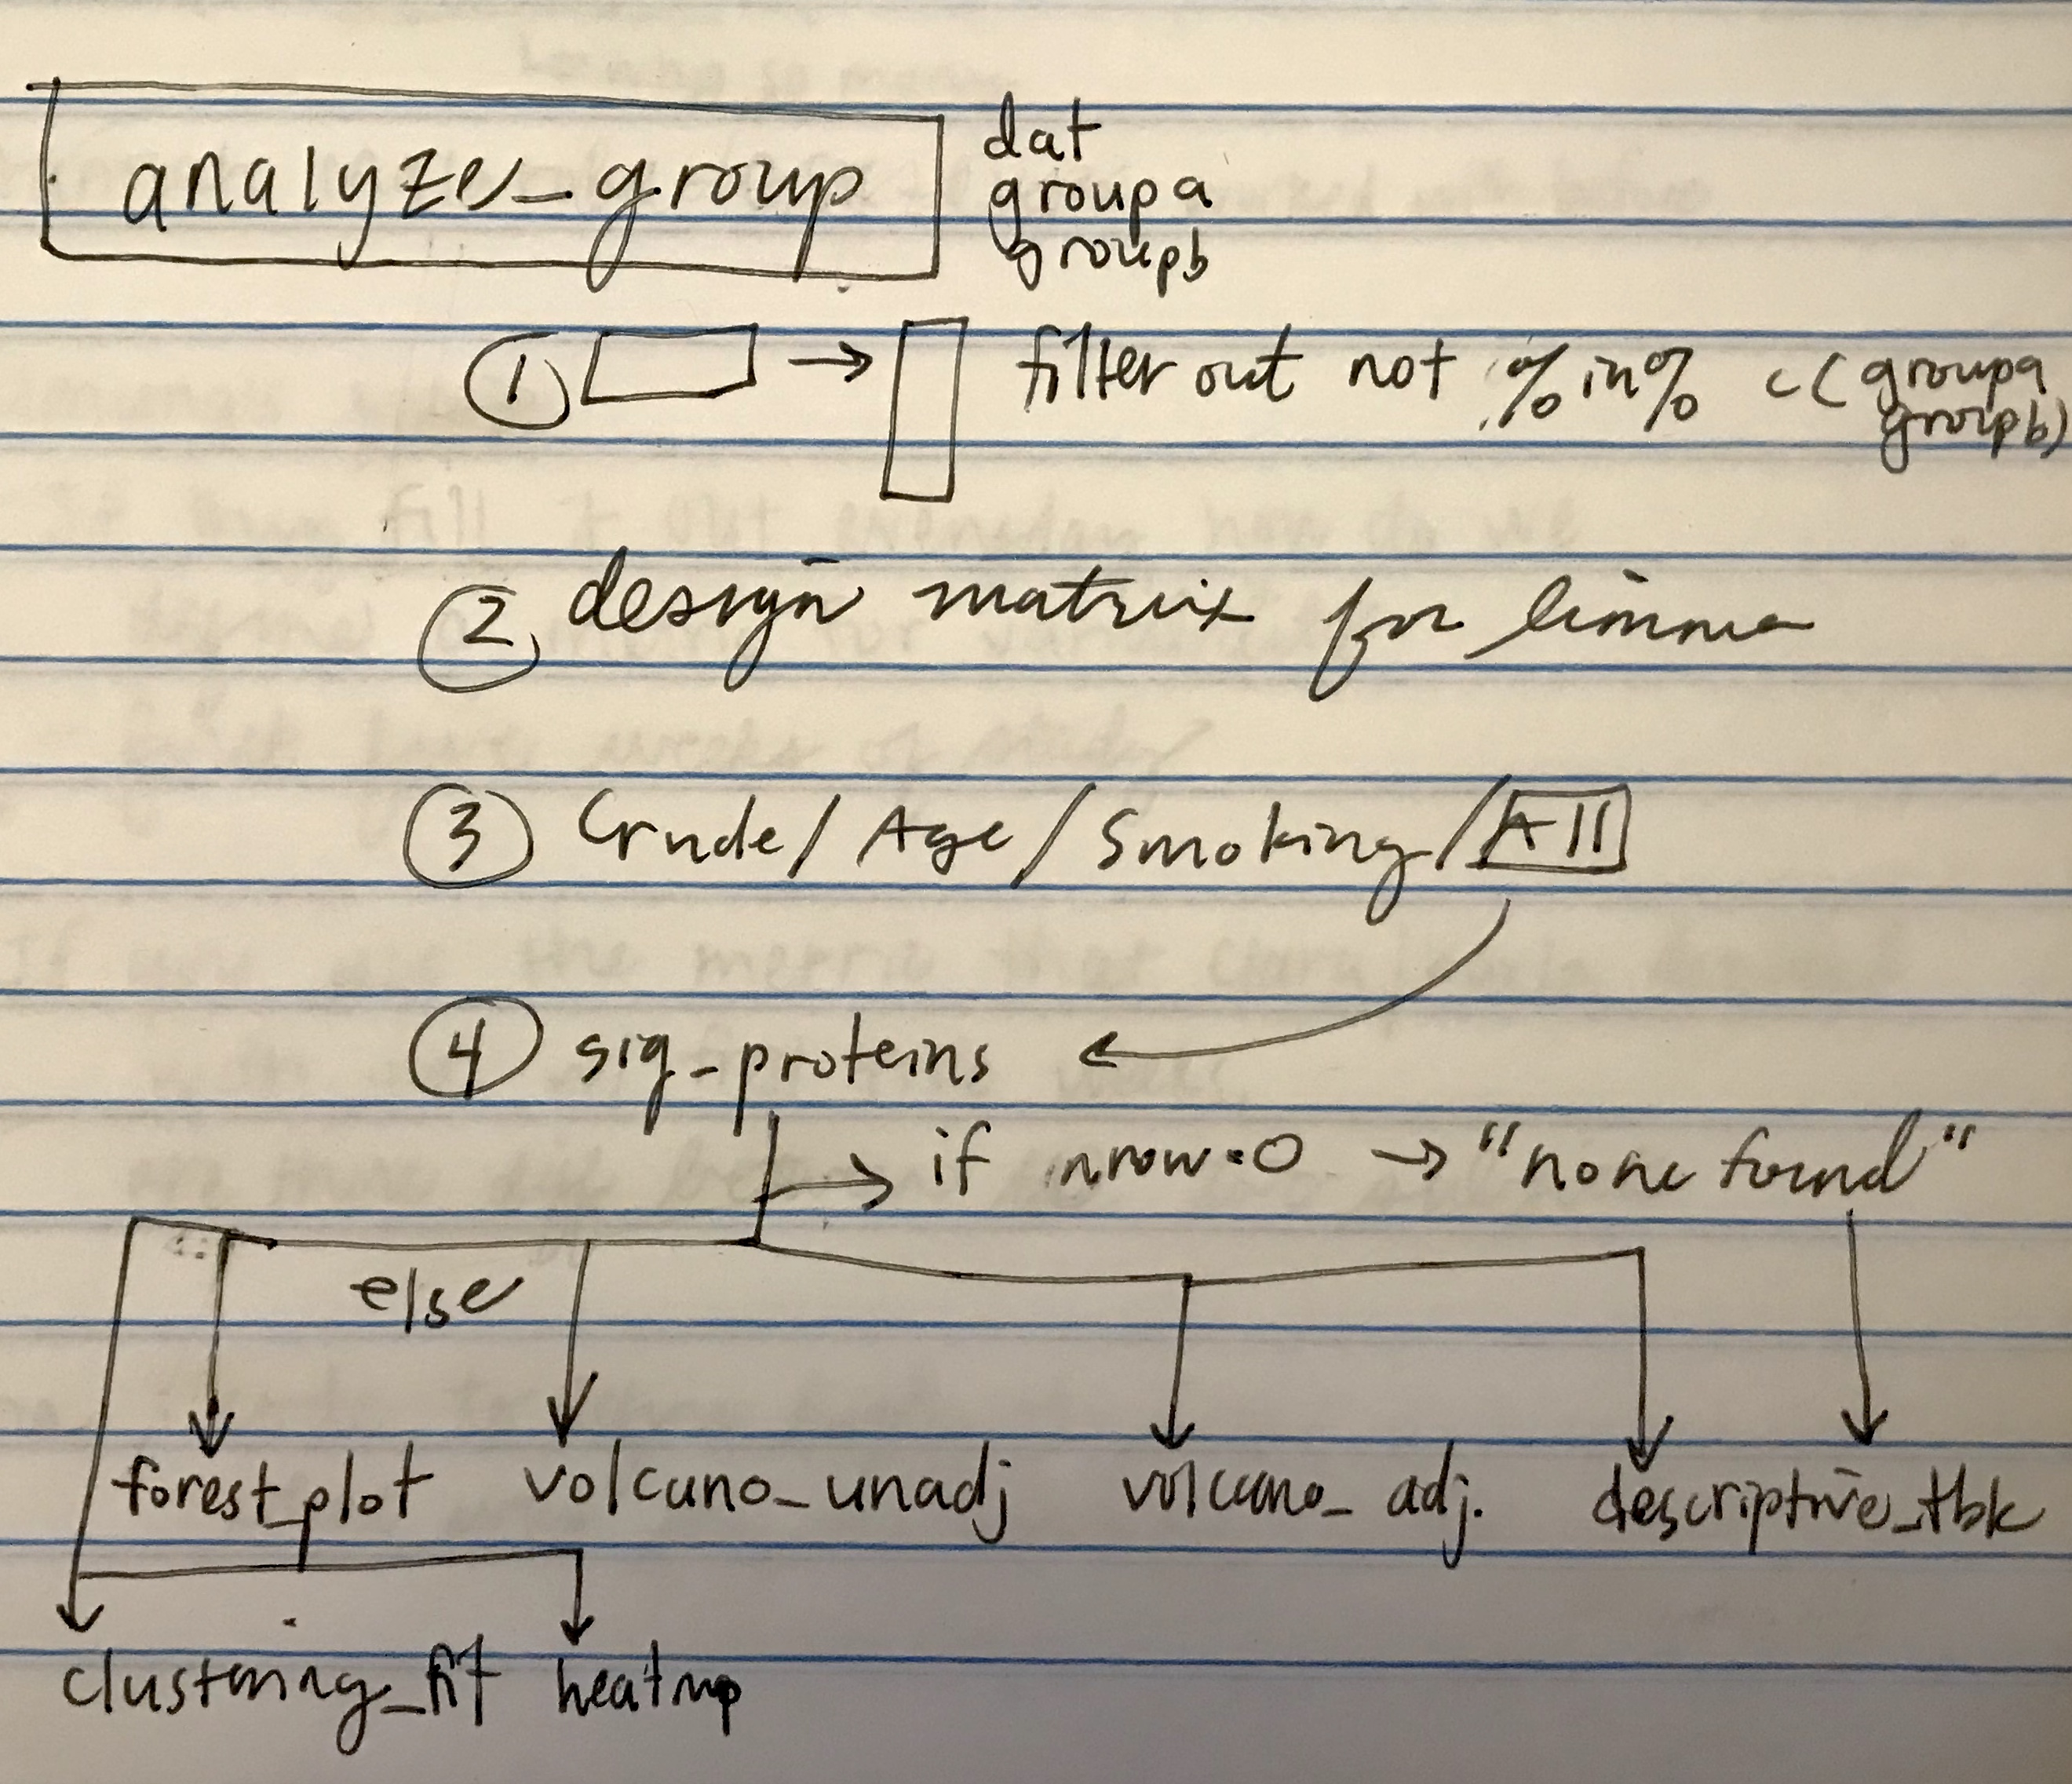 analyze_group
dat
groupa
groupb
① → filter out not %in% c(groupa
groupb)
② design matrix for limma
③ Crude/Age/Smoking/All
④ sig_proteins
→ if nrow=0 → "none found"
else
forest_plot volcano_unadj volcano_adj. descriptive_tbk
clustering_fit heatmp